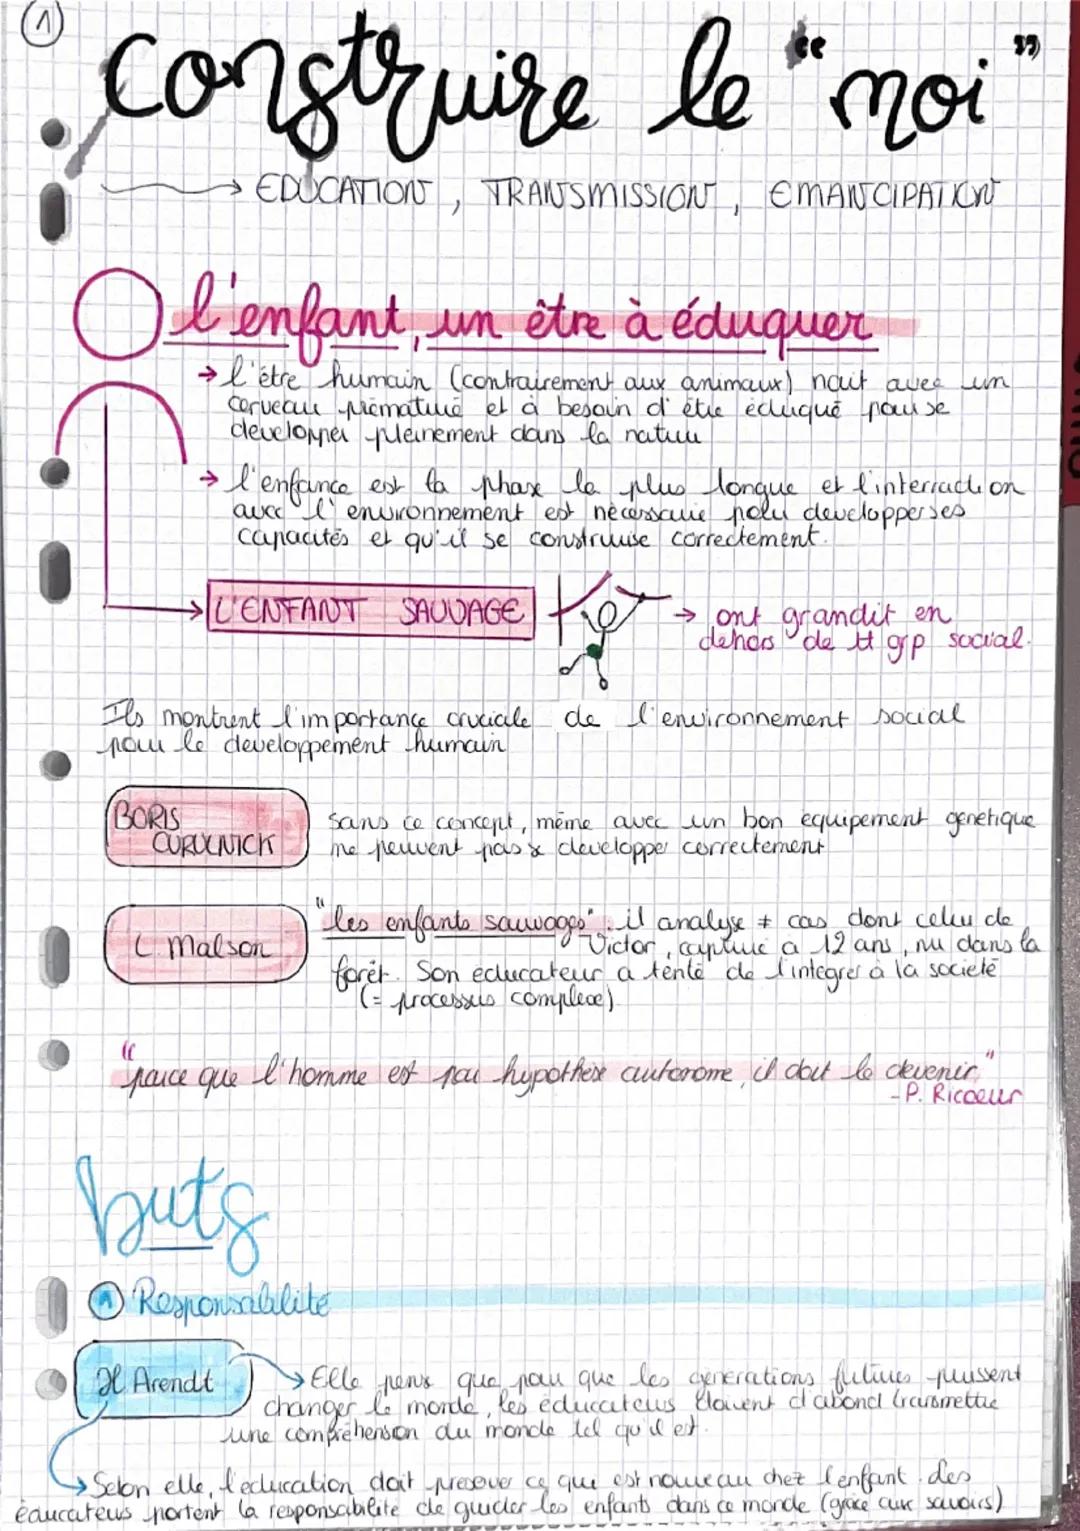 1
Construire le "moi"
→ EDUCATION, TRANSMISSION, EMANCIPATION
l'enfant, un être à éduquer
→ l'être humain (contrairement aux animaux) nait avec un
cerveau prématuré et à besoin d'être éduqué pour se
developper pleinement dans la nature
→ l'enfance est la phase la plus longue et l'interraction
avec l'environnement est nécessaire pour developper ses
capacités et qu'il se construise correctement.
L'ENFANT SAUVAGE
→ ont grandit en
dehors de tt grp social.
Ils montrent l'importance cruciale de l'environnement social
pour le developpement humain
BORIS
CURULNICK
sans ce concept, même avec un bon équipement génétique
ne peuvent pas se developper correctement
L. Malson
"les enfants sauvages" : il analyse ≠ cas dont celui de
Victor, capturé a 12 ans, nu dans la
forêt. Son éducateur a tenté de l'integrer à la societé
(= processus complexe)
"parce que l'homme est par hypothèse autonome, il doit le devenir"
- P. Ricoeur
buts
1 Responsabilité
H. Arendt
→ Elle pense que pour que les générations futures puissent
changer le monde, les éducateurs doivent d'abord transmettre
une compréhension du monde tel qu'il est.
→ Selon elle, l'education doit preserver ce que est nouveau chez l'enfant. Les
éducateurs portent la responsabilité de guider les enfants dans ce monde (grâce aux savoirs)